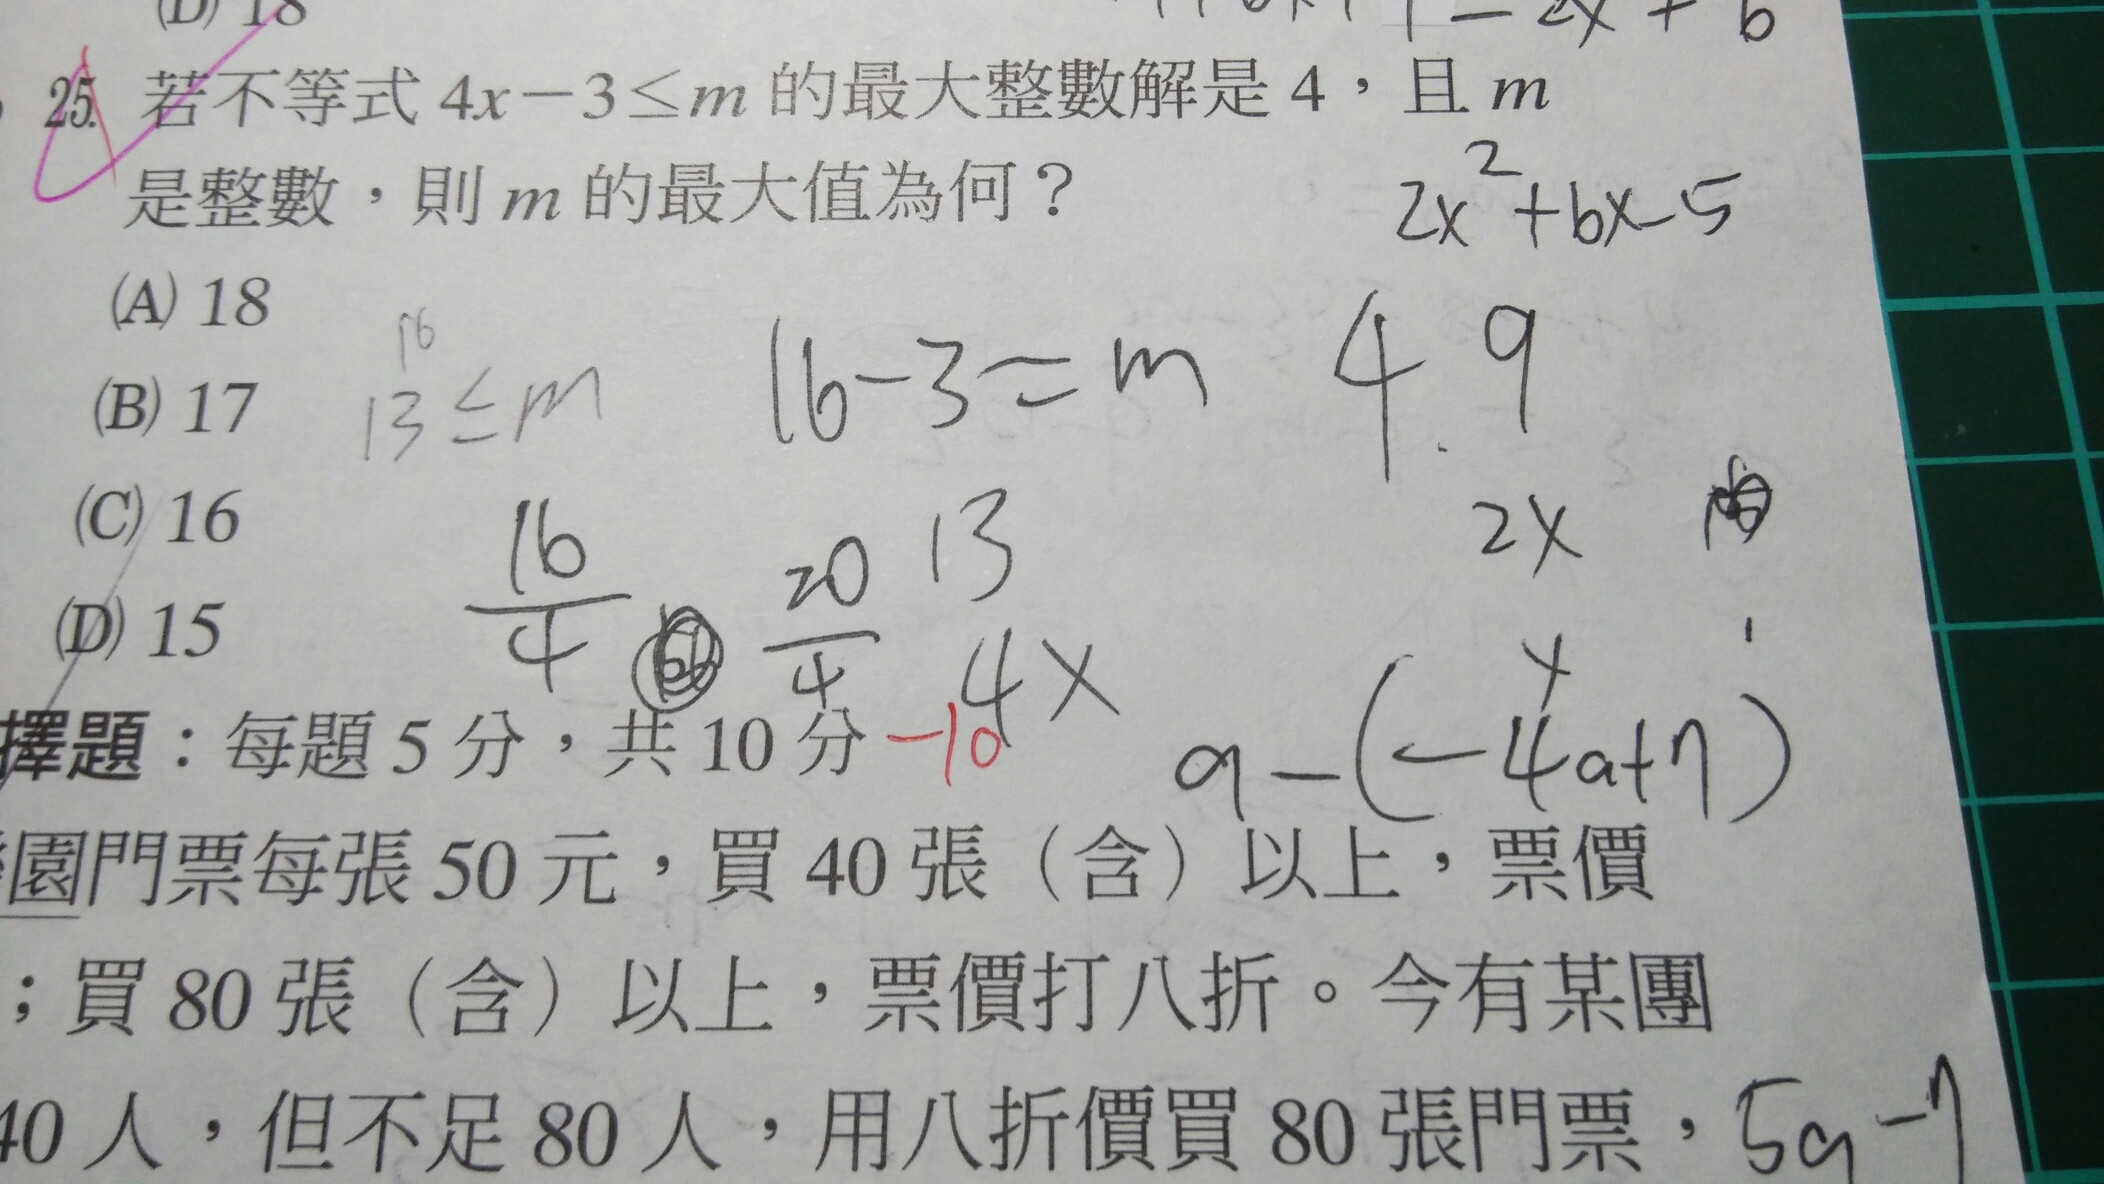 (D) 18
25. 若不等式 4x－3≤m 的最大整數解是 4，且 m
是整數，則 m 的最大值為何？
2x²+6x-5
(A) 18
16
(B) 17
13≤m
16-3=m
4.9
(C) 16
16/4
20/4
13
4x
2x
(D) 15
擇題：每題 5 分，共 10 分
-10
a-(-4a+7)
園門票每張 50 元，買 40 張（含）以上，票價
；買 80 張（含）以上，票價打八折。今有某團
40 人，但不足 80 人，用八折價買 80 張門票，
5a-7